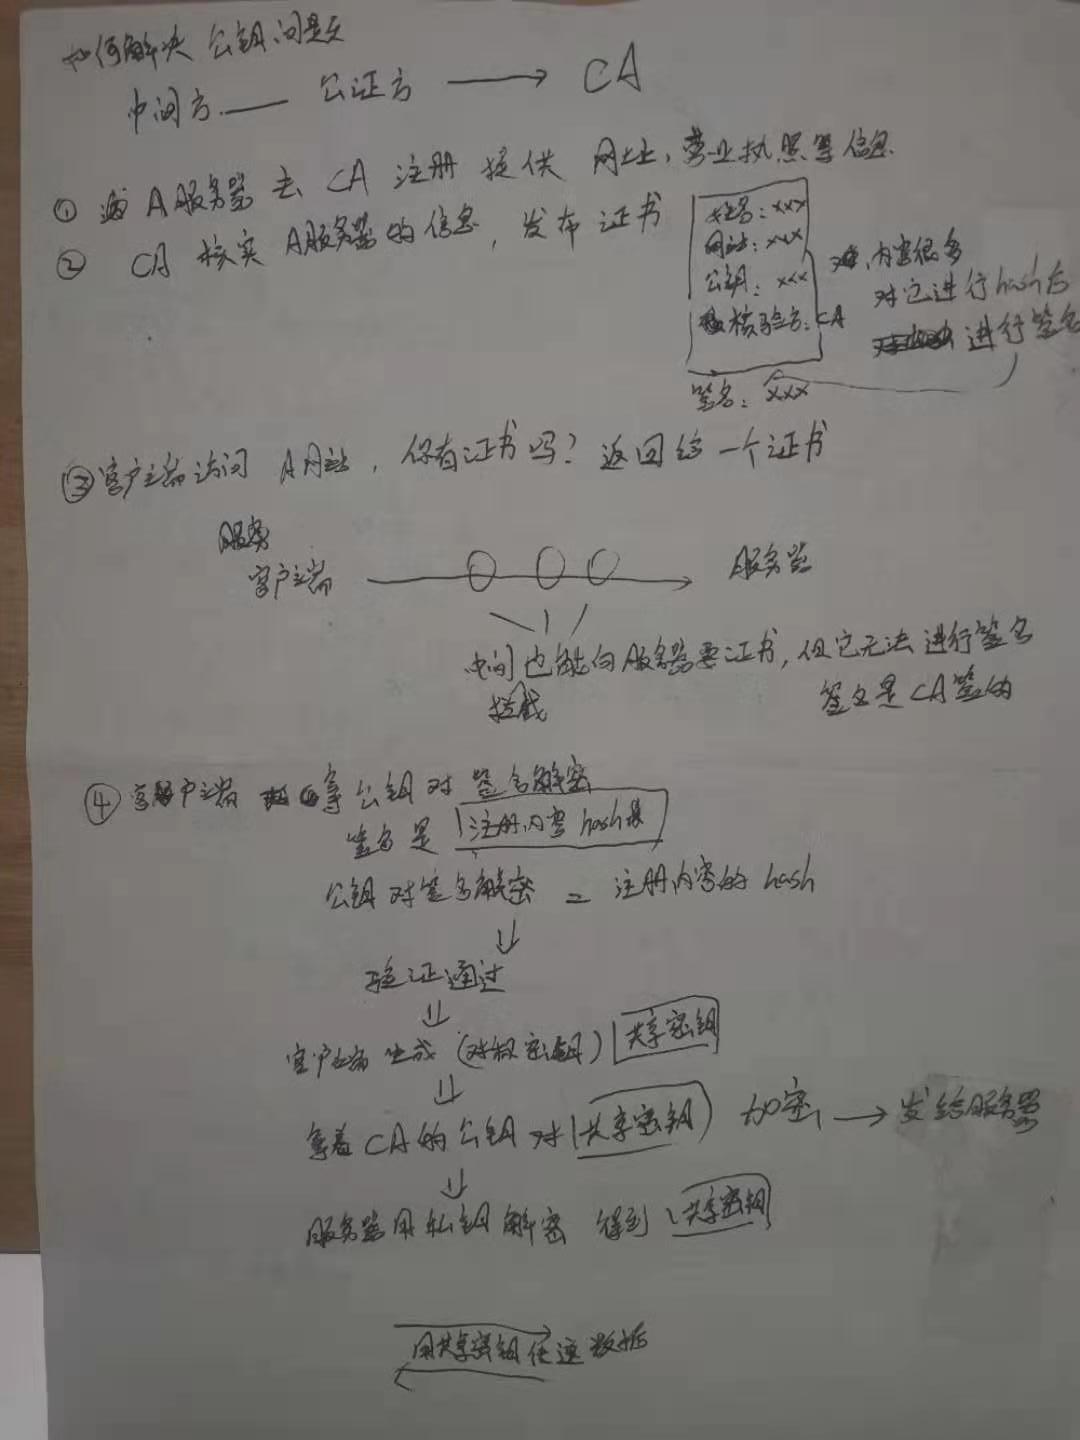 如何解决 公钥问题
中间方 —— 公证方 ⟶ CA
① A服务器 去 CA 注册 提供 网址，营业执照等信息
② CA 核实 A服务器的信息，发布证书
姓名：xxx
网站：xxx
公钥：xxx
核验方：CA
签名：xxx
内容很多
对它进行hash后
进行签名
③客户端访问 A网站，你有证书吗？返回给一个证书
服务
客户端 ⟶ 服务器
中间也能向服务器要证书，但它无法进行签名
拦截
签名是CA签的
④ 客户端 拿公钥对签名解密
签名是 注册内容hash
公钥对签名解密 = 注册内容的hash
⇓
验证通过
⇓
客户端生成（对称密钥）共享密钥
⇓
拿着CA的公钥对 共享密钥 加密 → 发给服务器
⇓
服务器用私钥解密 得到 共享密钥
用共享密钥传送数据